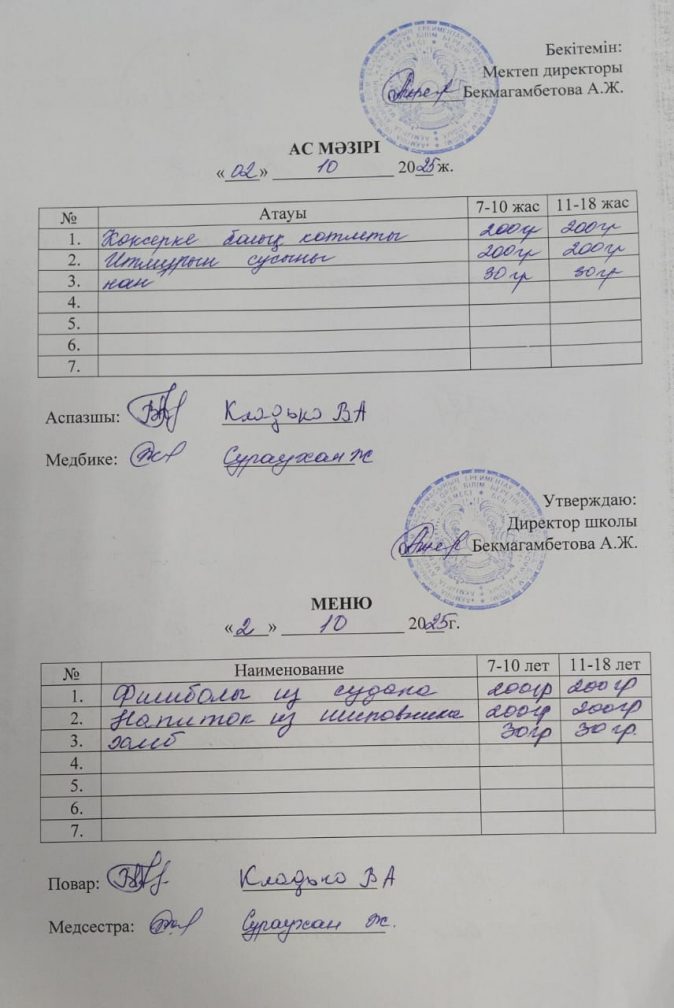 Бекітемін:
Мектеп директоры
Бекмагамбетова А.Ж.
АС МӘЗІРІ
«02» 10 2025 ж.
№ Атауы 7-10 жас 11-18 жас
1. Көксерке балық котлеты 200гр 200гр
2. Итмұрын сусыны 200гр 200гр
3. нан 30гр 30гр
4.
5.
6.
7.
Аспазшы: Кладько В А
Медбике: Сураухан Ж
Утверждаю:
Директор школы
Бекмагамбетова А.Ж.
МЕНЮ
«2» 10 2025г.
№ Наименование 7-10 лет 11-18 лет
1. Фишболы из судака 200гр 200гр
2. Напиток из шиповника 200гр 200гр
3. хлеб 30гр 30гр.
4.
5.
6.
7.
Повар: Кладько В А
Медсестра: Сураухан Ж.